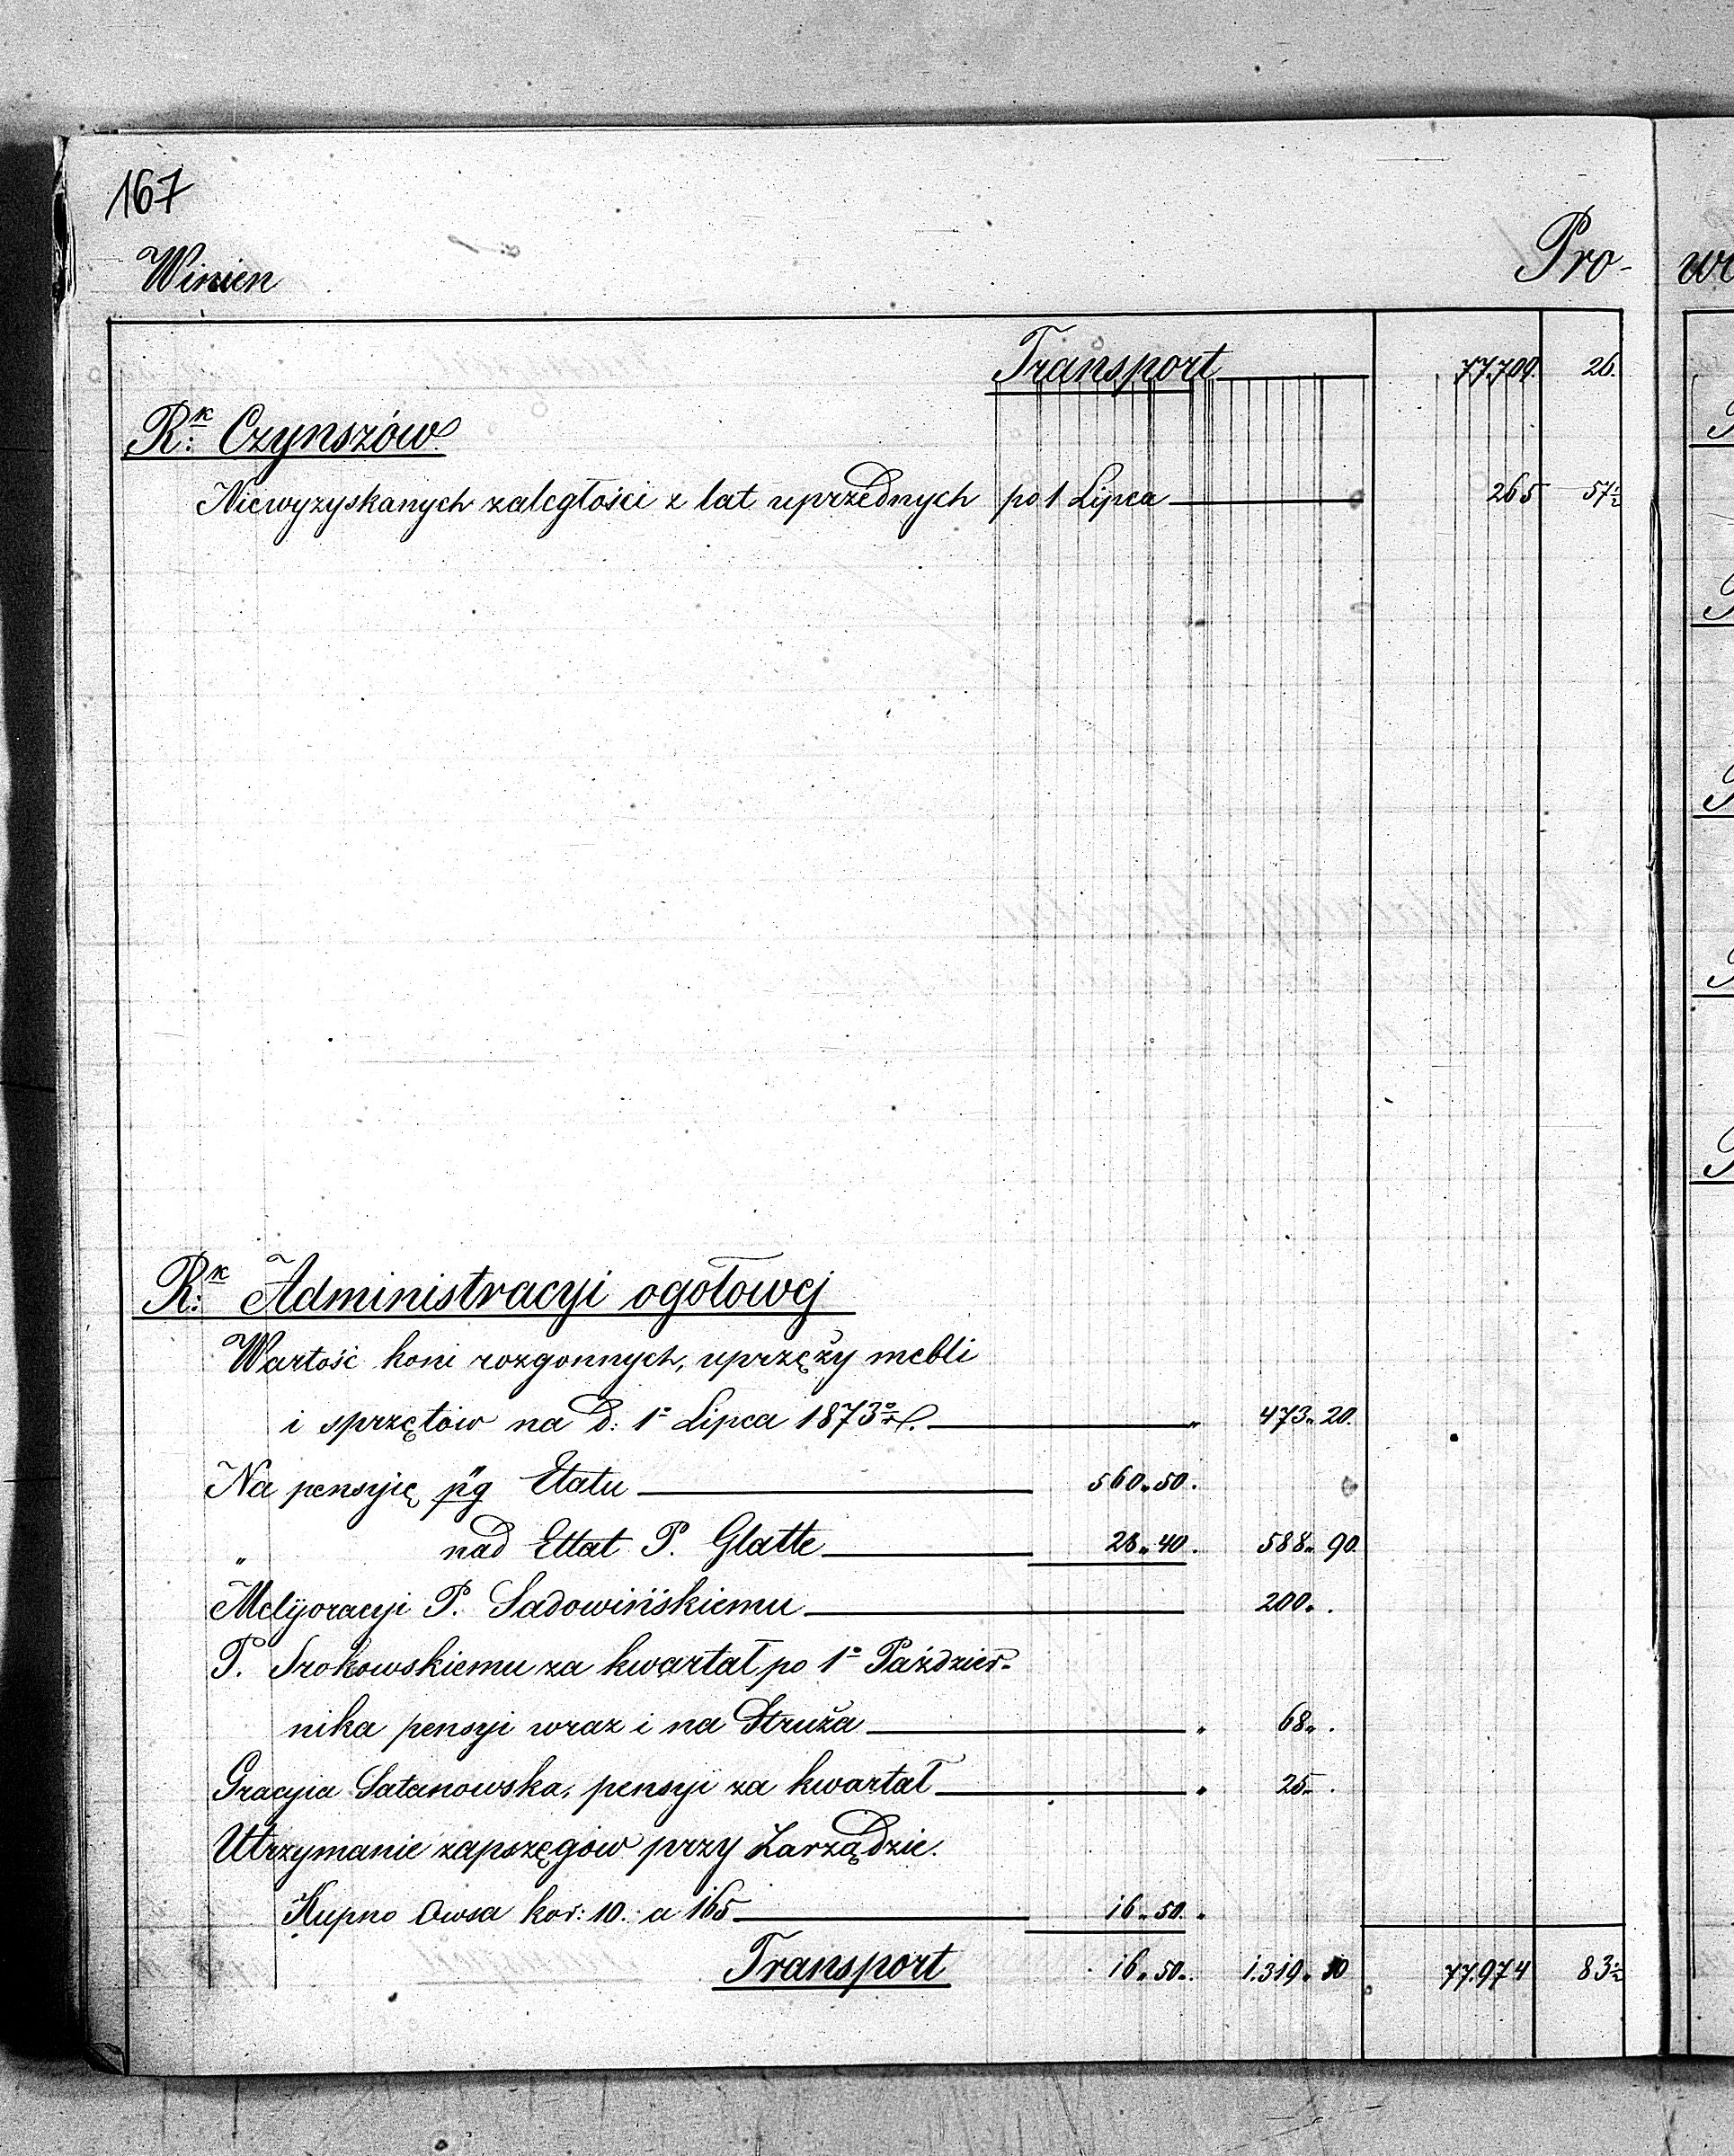 167
Winien Pro-
Transport 77.709. 26.
R:k Czynszów
Niewyzyskanych zaległości z lat uprzednych po 1 Lipca 265 57½
R:k Administracyi ogołowej
Wartość koni rozgonnych, uprzęży mebli
i sprzętów na d: 1o Lipca 1873 473 „ 20.
Na pensyię pg Etatu 560 „ 50.
„ nad Ettat P. Glatte 28 „ 40. 588 „ 90.
Melijoracyi P. Sadowińskiemu 200 „ .
P. Srokowskiemu za kwartał po 1o Paździer-
nika pensyi wraz i na Struża „ 68 „ .
Gracyia Satanowska, pensyi za kwartał „ 25 „ .
Utrzymanie zapszęgów przy Zarządzie.
Kupno Owsa kor: 10. a 165 16 „ 50.
Transport 16 „ 50 „ 1.319 „ 10 77.974 83½